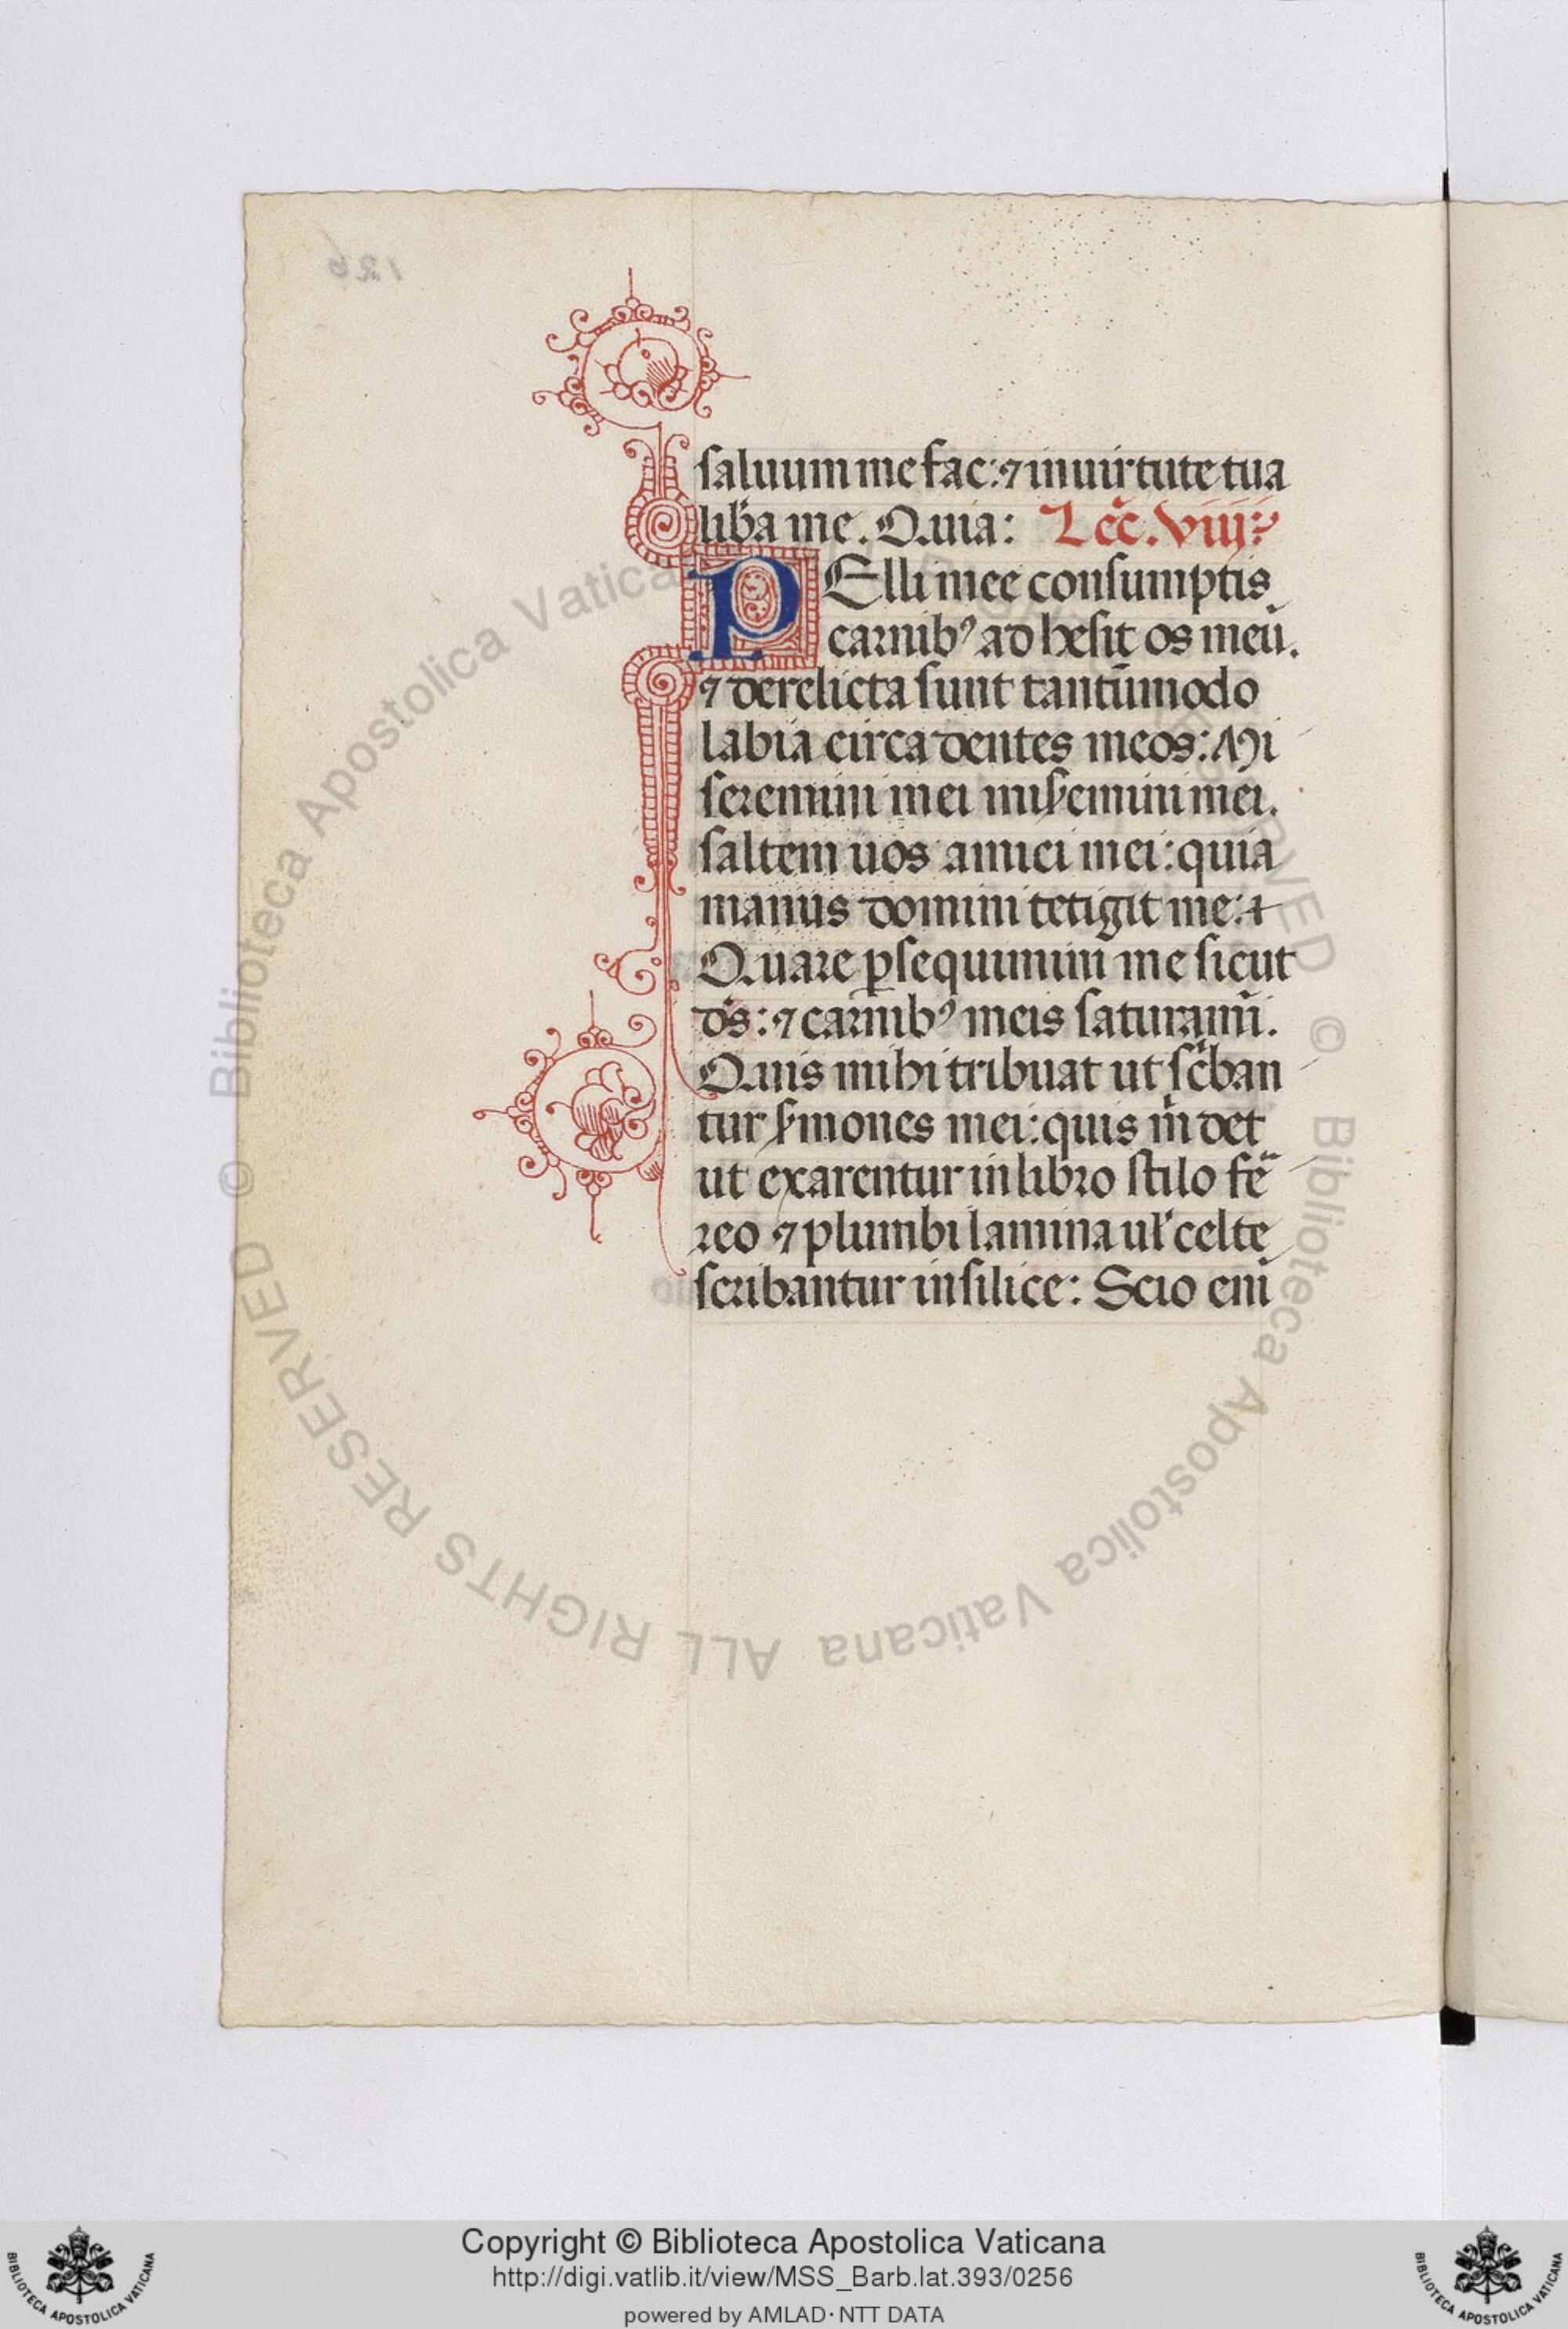 saluum me fac: ⁊ in uirtute tua
lib̃a me. Quia: Lec̃. viij:
PElli mee consumptis
carnibꝰ ad hesit os meũ.
⁊ derelicta sunt tantũmodo
labia circa dentes meos: Mi
seremini mei mis̃emini mei.
saltem uos amici mei: quia
manus domini tetigit me: ⁊
Quare ꝑsequimini me sicut
ds̃: ⁊ carnibꝰ meis saturamĩ.
Quis mihi tribuat ut sc̃ban
tur s̃mones mei: quis m̃ det
ut exarentur in libro stilo fẽ
reo ⁊ plumbi lamina ul̃ celte
scribantur in silice: Scio enĩ
© Biblioteca Apostolica Vaticana ALL RIGHTS RESERVED
Copyright © Biblioteca Apostolica Vaticana
http://digi.vatlib.it/view/MSS_Barb.lat.393/0256
powered by AMLAD·NTT DATA
BIBLIOTECA APOSTOLICA VATICANA
BIBLIOTECA APOSTOLICA VATICANA